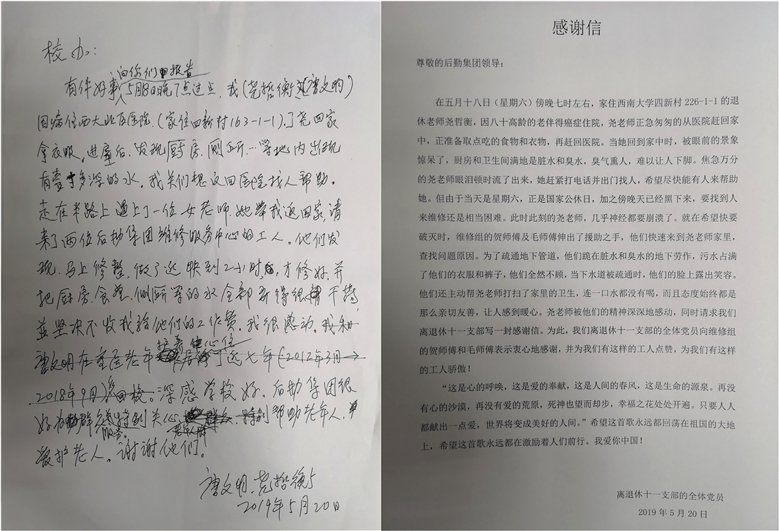 校办：
有件好事向你们报告
5月18日晚7点过点，我（尧哲衡
因病住西大北区医院（家住四新村163-1-1）了
拿衣服，进屋后，发现厨房、厕所
多深的水，我
走在半路上遇上了一位女老师，她带我返回家，请
来了两位后勤集团维修服务中心的工人。他们发
现，马上修整，做了近
把厨房、食堂、厕所等的水全部弄得很干
并坚决不收我给他们的工作费。我很感动。我和
唐文明在重医老年
2018年9月
深感学校好。后勤集团很
好
特别关心
帮助老年人，
爱护老人。谢谢他们！
唐文明、尧哲衡
2019年5月20日
感谢信
尊敬的后勤集团领导：
在五月十八日（星期六）傍晚七时左右，家住西南大学四新村 226-1-1 的退
休老师尧哲衡，因八十高龄的老伴得癌症住院，尧老师正急匆匆的从医院赶回家
中，正准备取点吃的食物和衣物，再赶回医院。当她回到家中时，被眼前的景象
惊呆了，厨房和卫生间满地是脏水和臭水，臭气熏人，难以让人下脚。焦急万分
的尧老师眼泪顿时流了出来，她赶紧打电话并出门找人，希望尽快能有人来帮助
她。但由于当天是星期六，正是国家公休日，加之傍晚天已经黑下来，要找到人
来维修还是相当困难。此时此刻的尧老师，几乎神经都要崩溃了。就在希望快要
破灭时，维修组的贺师傅及毛师傅伸出了援助之手，他们快速来到尧老师家里，
查找问题原因。为了疏通地下管道，他们跪在脏水和臭水的地下劳作，污水占满
了他们的衣服和裤子，他们全然不顾，当下水道被疏通时，他们的脸上露出笑容。
他们还主动帮尧老师打扫了家里的卫生，连一口水都没有喝，而且态度始终都是
那么亲切友善，让人感到暖心。尧老师被他们的精神深深地感动，同时请求我们
离退休十一支部写一封感谢信。为此，我们离退休十一支部的全体党员向维修组
的贺师傅和毛师傅表示衷心地感谢，并为我们有这样的工人点赞，为我们有这样
的工人骄傲！
“这是心的呼唤，这是爱的奉献，这是人间的春风，这是生命的源泉。再没
有心的沙漠，再没有爱的荒原，死神也望而却步，幸福之花处处开遍。只要人人
都献出一点爱，世界将变成美好的人间。”希望这首歌永远都回荡在祖国的大地
上，希望这首歌永远都在激励着人们前行。我爱你中国！
离退休十一支部的全体党员
2019 年 5 月 20 日